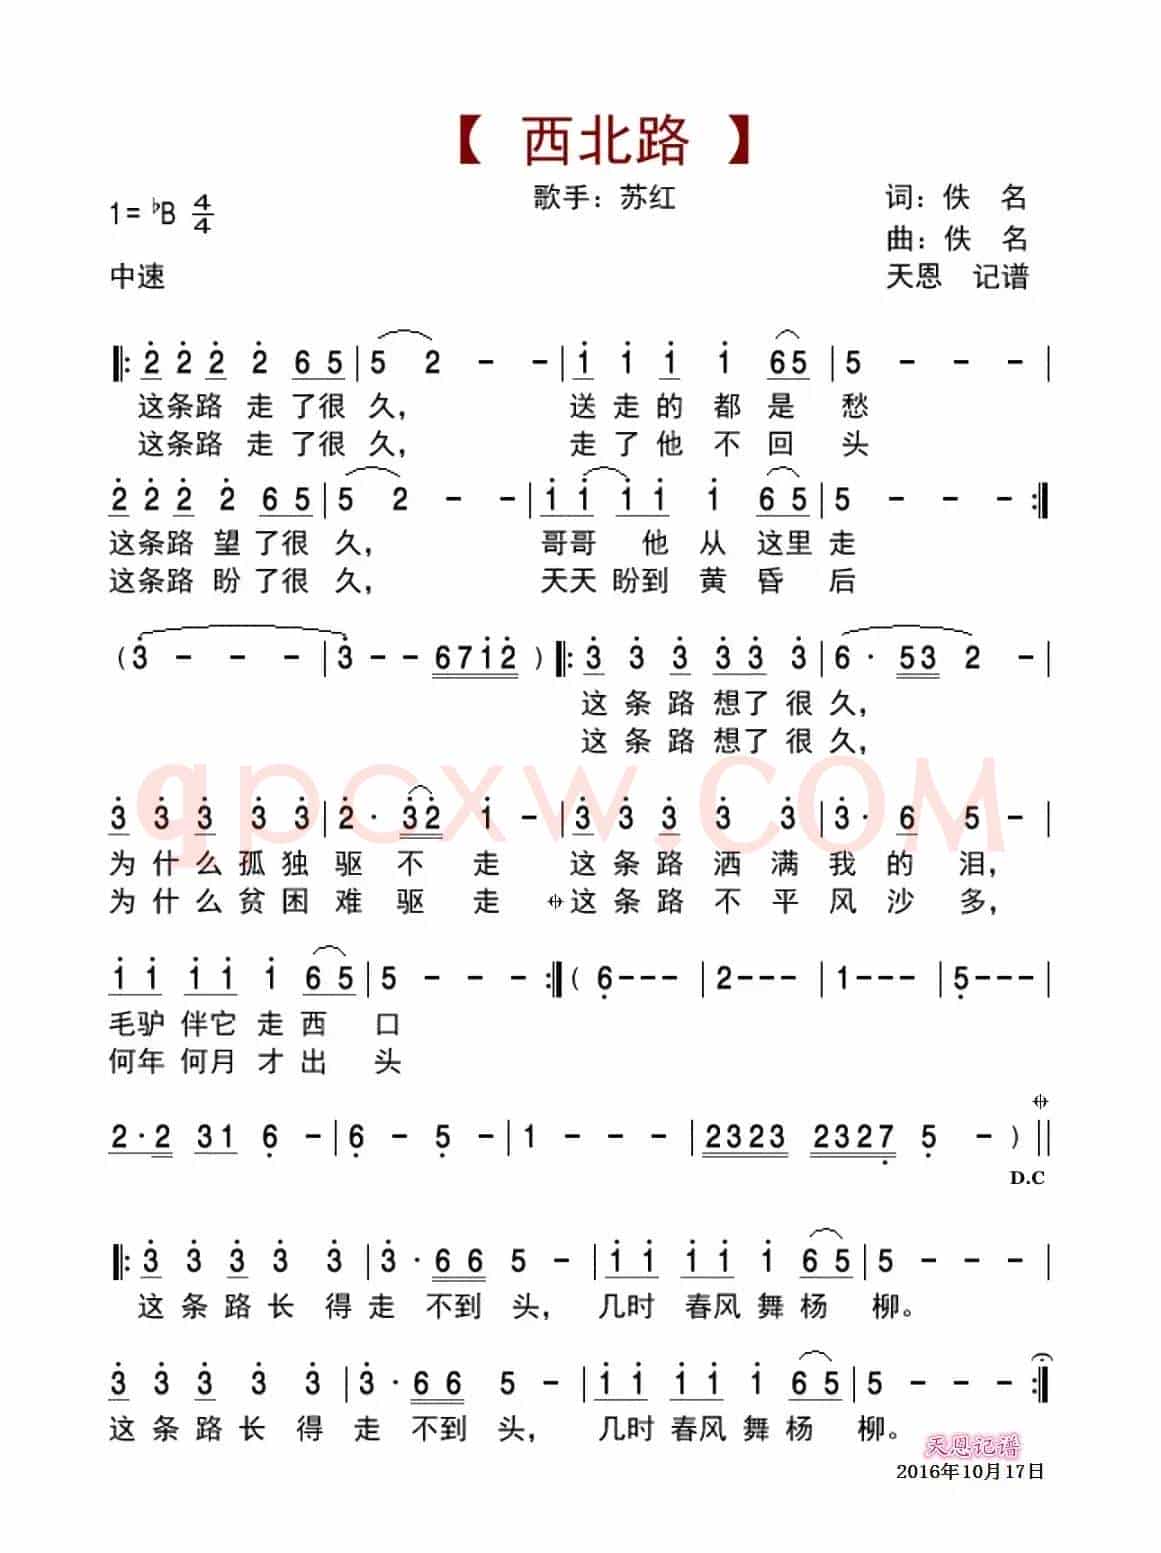 【 西北路 】
歌手：苏红
词：佚 名
1= ♭B 4/4
曲：佚 名
中速
天恩 记谱
‖: 2̇ 2̇ 2̇ 2̇ 6 5 | 5 2 - - | 1̇ 1̇ 1̇ 1̇ 65 | 5 - - - |
这条路 走 了很 久， 送 走 的 都 是 愁
这条路 走 了很 久， 走 了 他 不 回 头
2̇ 2̇ 2̇ 2̇ 6 5 | 5 2 - - | 1̇ 1̇ 1̇ 1̇ 1̇ 6 5 | 5 - - - :‖
这条路 望 了很 久， 哥哥 他 从 这里 走
这条路 盼 了很 久， 天天 盼到 黄 昏 后
( 3̇ - - - | 3̇ - - 671̇2̇ ) ‖: 3̇ 3̇ 3̇ 3̇ 3̇ 3̇ | 6 · 53 2 - |
这 条 路 想了 很 久，
这 条 路 想了 很 久，
qpcxw.COM
3̇ 3̇ 3̇ 3̇ 3̇ | 2̇ · 3̇2̇ 1̇ - | 3̇ 3̇ 3̇ 3̇ 3̇ | 3̇ · 6 5 - |
为 什 么 孤 独 驱 不 走 这 条 路 洒 满 我 的 泪，
为 什 么 贫 困 难 驱 走 𝄌 这 条 路 不 平 风 沙 多，
1̇ 1̇ 1̇ 1̇ 1̇ 6 5 | 5 - - - :‖ ( 6̣ - - - | 2 - - - | 1 - - - | 5̣ - - - |
毛驴 伴它 走 西 口
何年 何月 才 出 头
𝄌
2 · 2 31 6̣ - | 6̣ - 5̣ - | 1 - - - | 2323 2327̣ 5̣ - ) ‖
D.C
‖: 3̇ 3̇ 3̇ 3̇ 3̇ | 3̇ · 6 6 5 - | 1̇ 1̇ 1̇ 1̇ 1̇ 6 5 | 5 - - - |
这 条 路 长 得 走 不到 头， 几时 春风 舞 杨 柳。
3̇ 3̇ 3̇ 3̇ 3̇ | 3̇ · 6 6 5 - | 1̇ 1̇ 1̇ 1̇ 1̇ 6 5 | 5 - - - :‖
这 条 路 长 得 走 不到 头， 几时 春风 舞 杨 柳。
天恩记谱
2016年10月17日